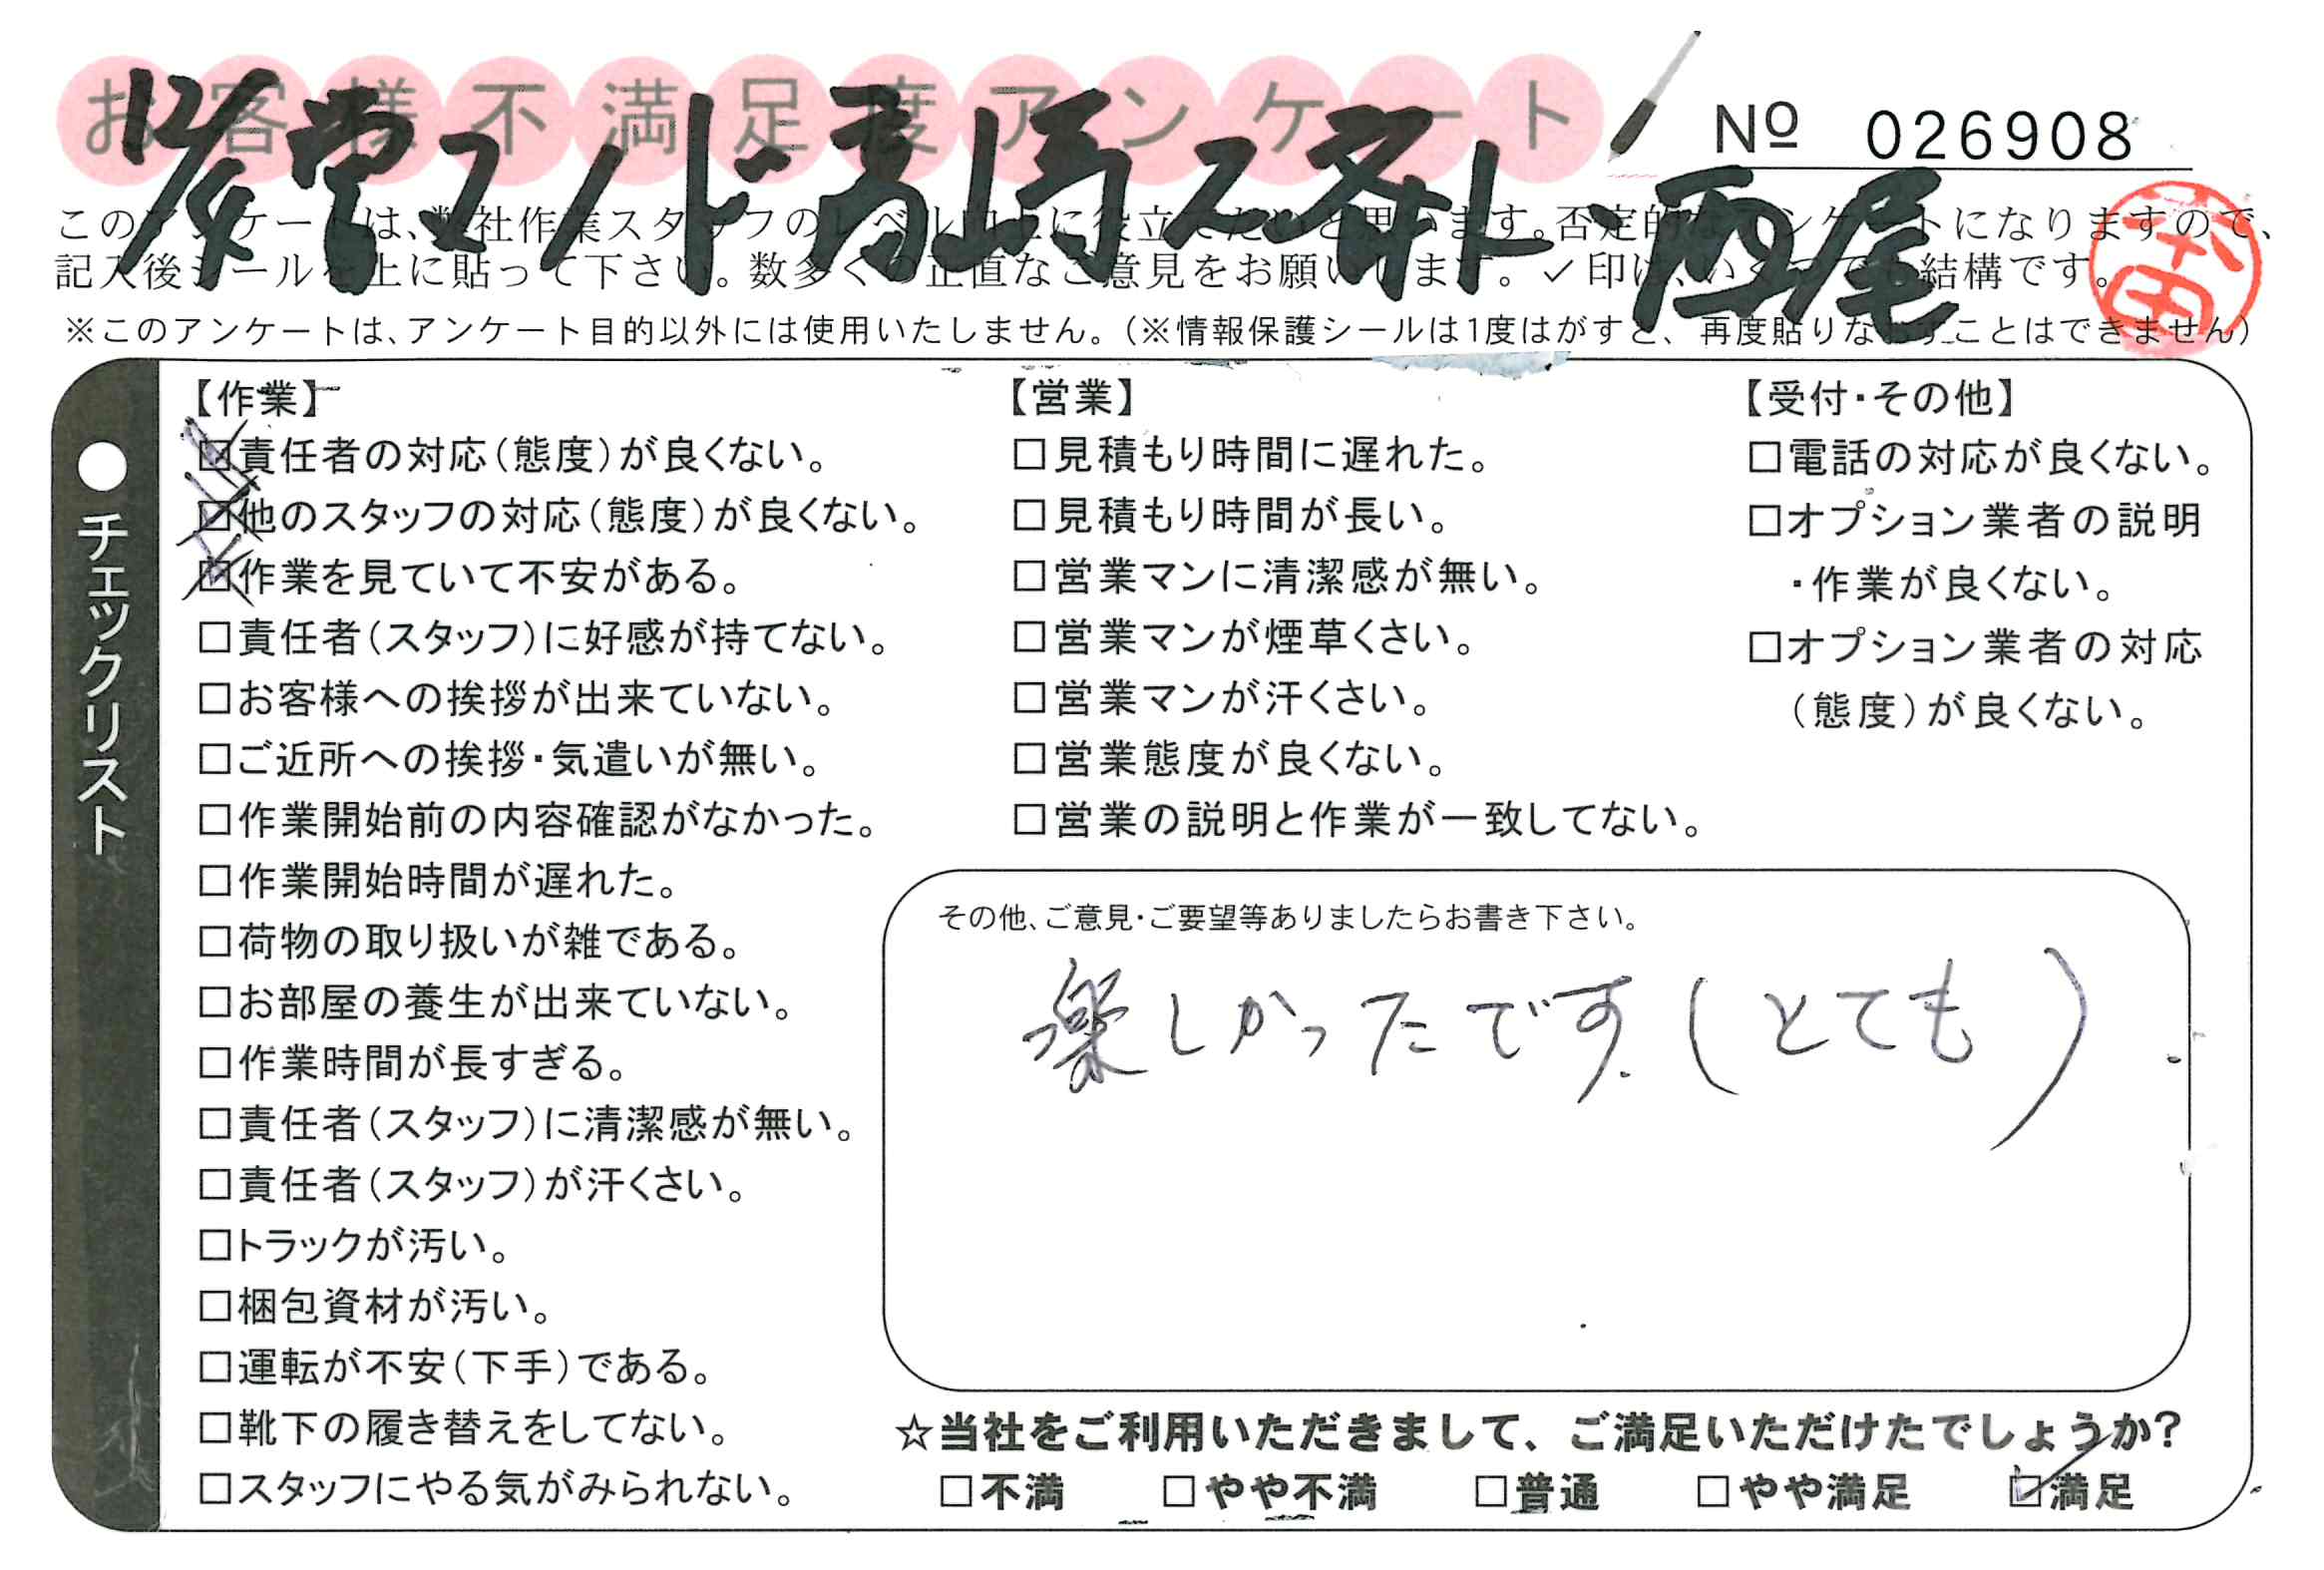 お客様不満足度アンケート
№ 026908
12/4
西尾
このアンケートは、弊社作業スタッフのレベル向上に役立てたいと思います。否定的なアンケートになりますので、
記入後シールを上に貼って下さい。数多くの正直なご意見をお願いします。✓印は、いくつでも結構です。
※このアンケートは、アンケート目的以外には使用いたしません。(※情報保護シールは1度はがすと、再度貼りなおすことはできません)
●チェックリスト
【作業】
☑責任者の対応(態度)が良くない。
☑他のスタッフの対応(態度)が良くない。
☑作業を見ていて不安がある。
□責任者(スタッフ)に好感が持てない。
□お客様への挨拶が出来ていない。
□ご近所への挨拶・気遣いが無い。
□作業開始前の内容確認がなかった。
□作業開始時間が遅れた。
□荷物の取り扱いが雑である。
□お部屋の養生が出来ていない。
□作業時間が長すぎる。
□責任者(スタッフ)に清潔感が無い。
□責任者(スタッフ)が汗くさい。
□トラックが汚い。
□梱包資材が汚い。
□運転が不安(下手)である。
□靴下の履き替えをしてない。
□スタッフにやる気がみられない。
【営業】
□見積もり時間に遅れた。
□見積もり時間が長い。
□営業マンに清潔感が無い。
□営業マンが煙草くさい。
□営業マンが汗くさい。
□営業態度が良くない。
□営業の説明と作業が一致してない。
【受付・その他】
□電話の対応が良くない。
□オプション業者の説明
・作業が良くない。
□オプション業者の対応
(態度)が良くない。
その他、ご意見・ご要望等ありましたらお書き下さい。
楽しかったです.(とても)
☆当社をご利用いただきまして、ご満足いただけたでしょうか?
□不満 □やや不満 □普通 □やや満足 ☑満足